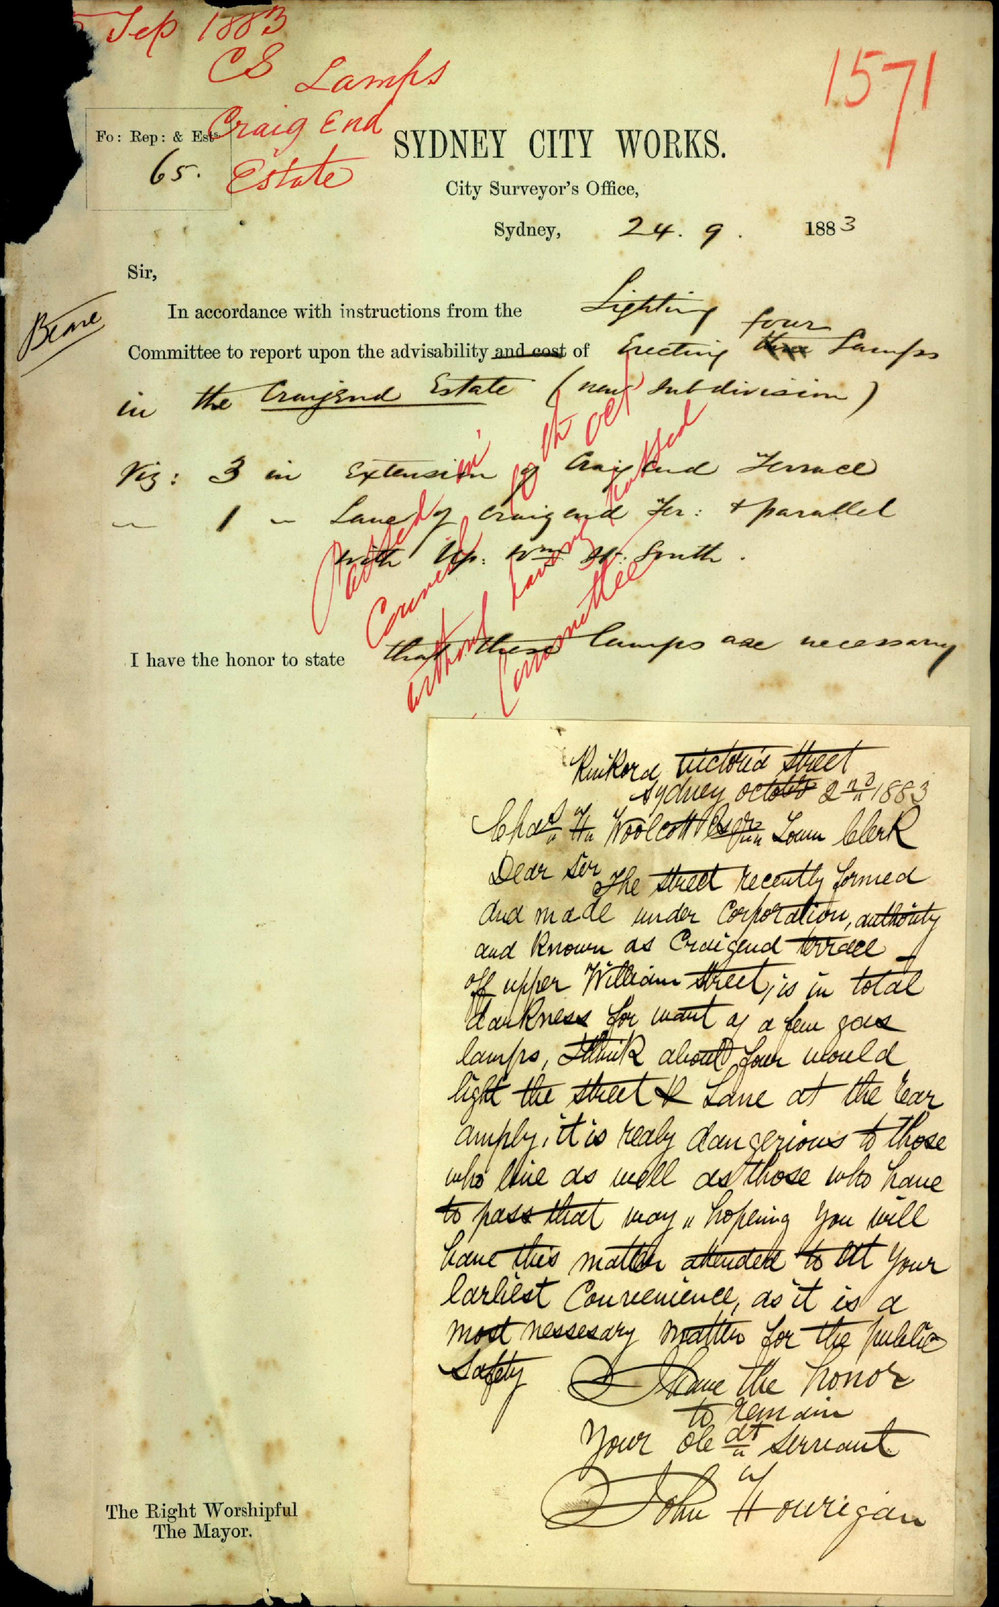 Sep 1883
CS Lamps
Craig End
Estate
1571
Fo: Rep: & Ests
65.
SYDNEY CITY WORKS.
City Surveyor's Office,
Sydney, 24. 9. 1883
Sir,
Beare
In accordance with instructions from the Lighting
Committee to report upon the advisability and cost of Erecting four Lamps
in the Craigend Estate (new Subdivision)
Viz: 3 in Extension of Craigend Terrace
" 1 " Lane of Craigend Ter: & parallel
with Up: Wm St. South.
Passed in
Council 10th Oct
without having passed
Committee
I have the honor to state that these lamps are necessary
victoria street
Sydney october 2nd 1883
Chas H. Woolcott Esqr Town Clerk
Dear Sir The street recently formed
and made under Corporation, authority
and known as Craigend terrace
off upper William street, is in total
darkness for want of a few gas
lamps, I think about four would
light the street & Lane at the rear
amply, it is realy dangerious to those
who live as well as those who have
to pass that way " hopeing you will
have this matter attended to at your
Earliest Convenience, as it is a
most nessesary matter for the public
safety
I have the honor
to remain
Your obedt servant
John Hourigan
The Right Worshipful
The Mayor.